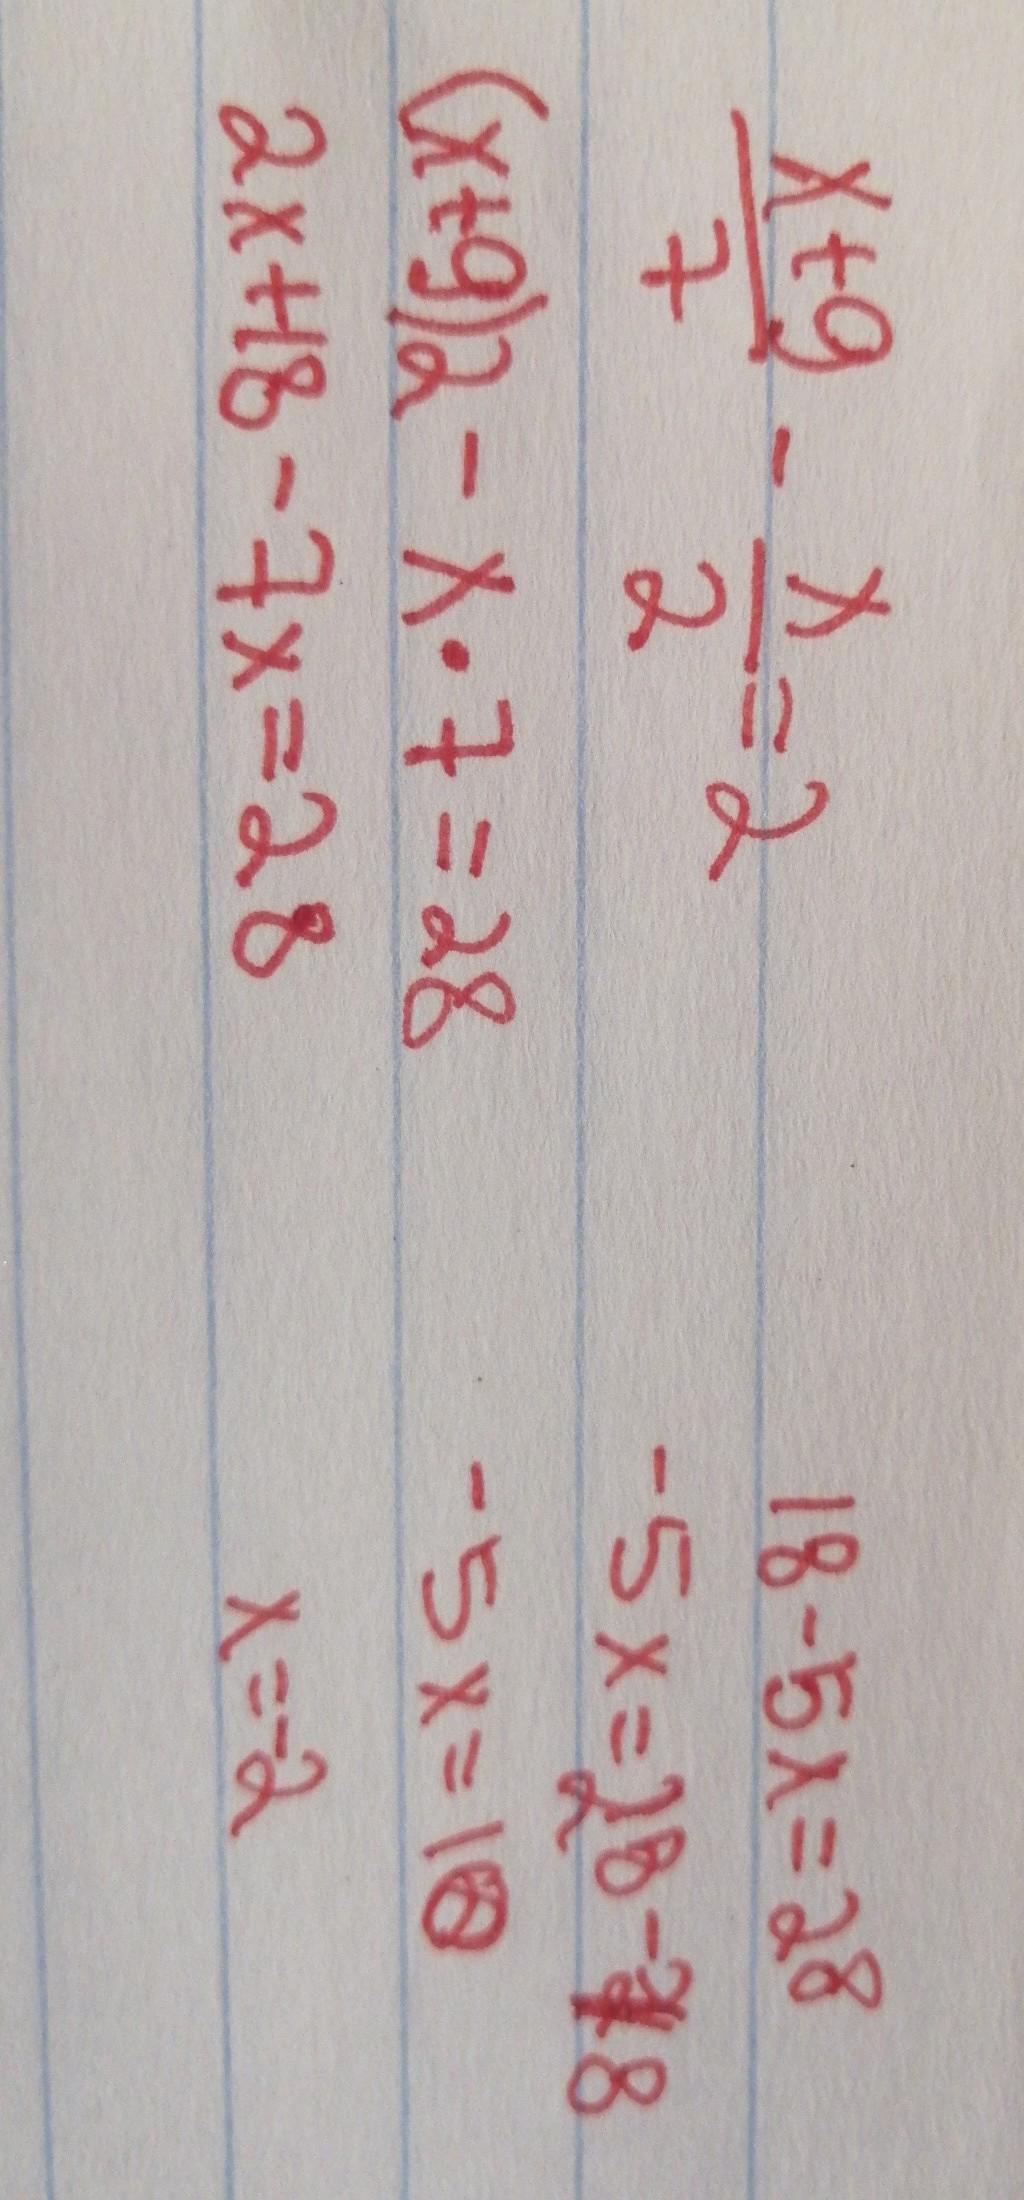 x+9/7 - x/2 = 2
(x+9)2 - x·7 = 28
2x+18 - 7x = 28
18 - 5x = 28
-5x = 28 - 18
-5x = 10
x = -2